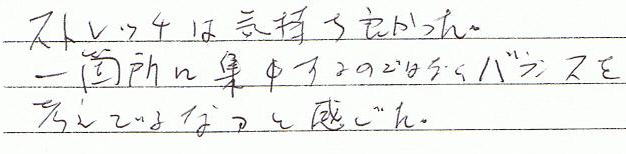 ストレッチは気持ち良かった。
一箇所に集中するのではなくバランスを
考えているなっと感じた。